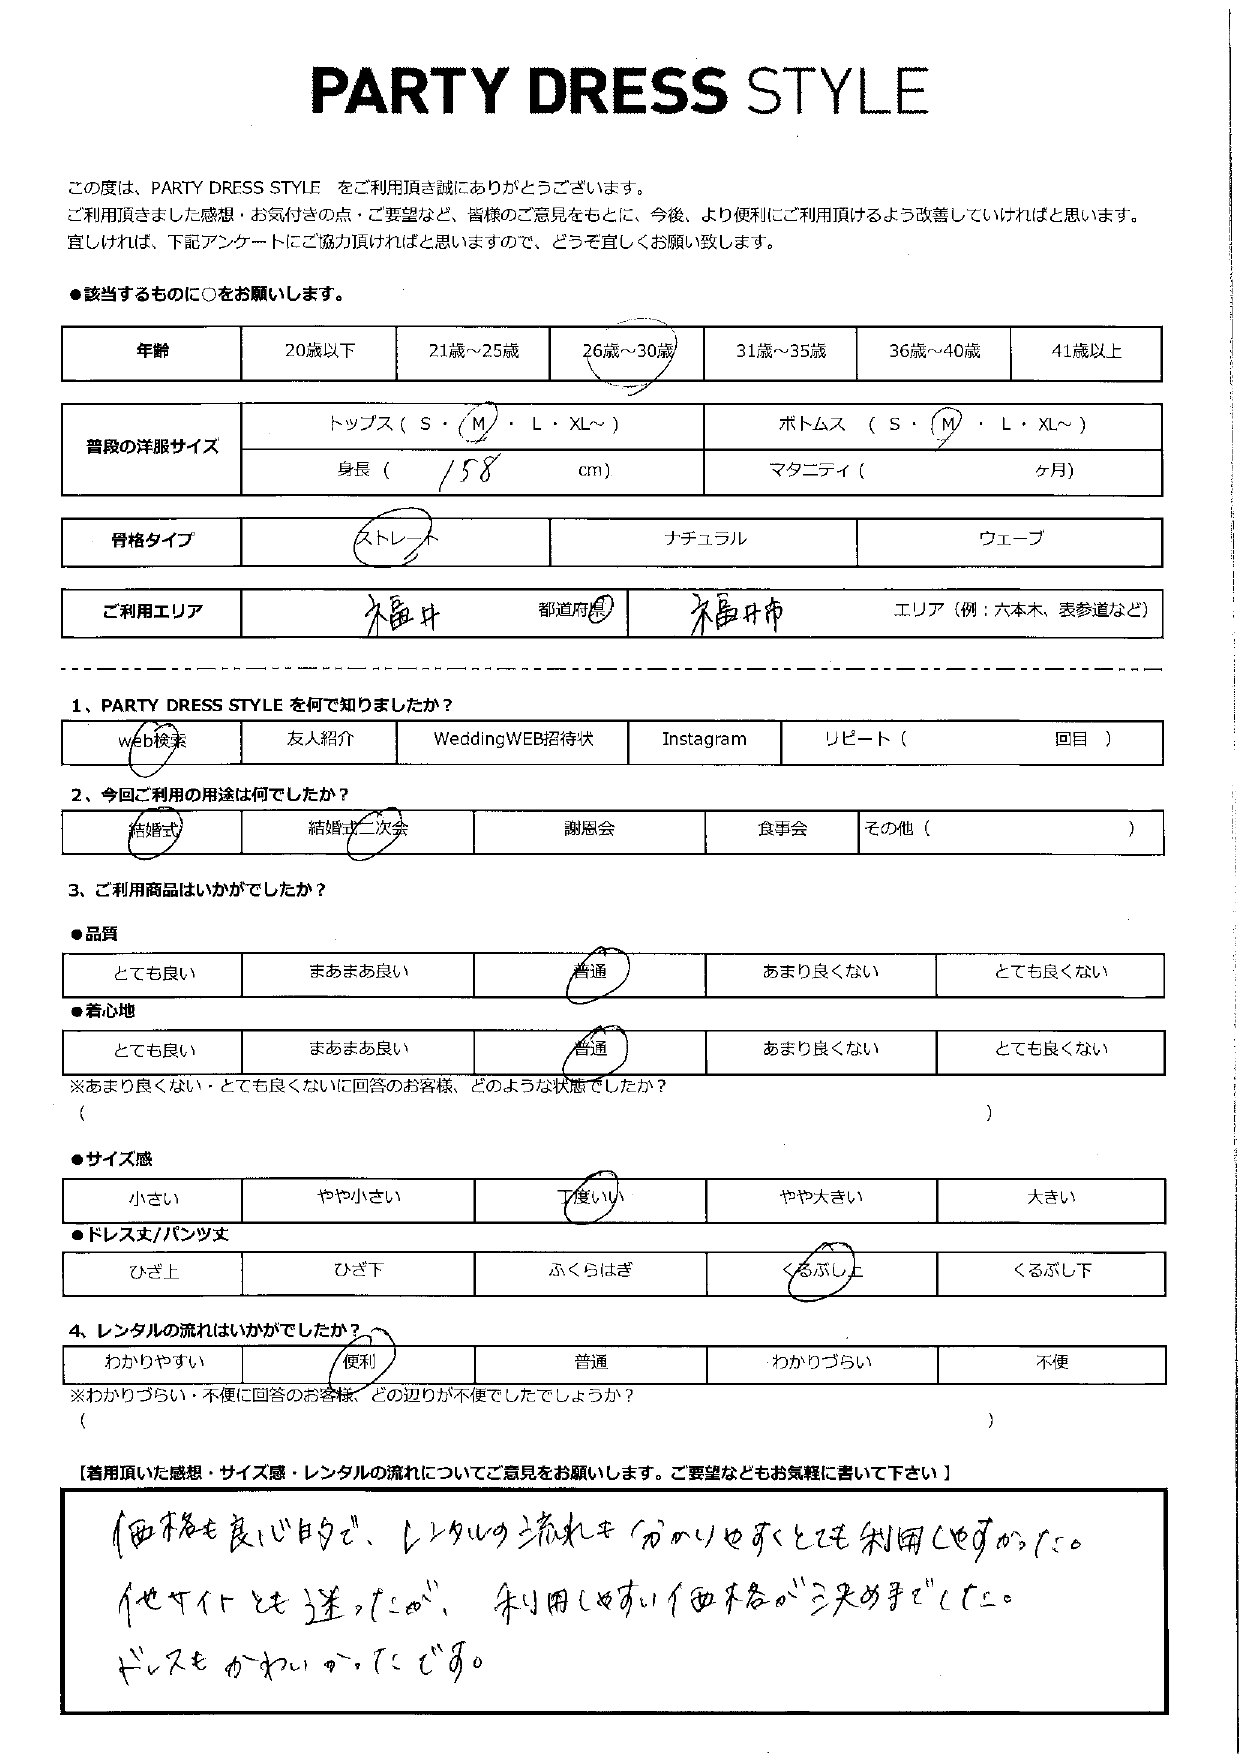 PARTY DRESS STYLE
この度は、PARTY DRESS STYLE をご利用頂き誠にありがとうございます。
ご利用頂きました感想・お気付きの点・ご要望など、皆様のご意見をもとに、今後、より便利にご利用頂けるよう改善していければと思います。
宜しければ、下記アンケートにご協力頂ければと思いますので、どうぞ宜しくお願い致します。
●該当するものに○をお願いします。
年齢 20歳以下 21歳～25歳 26歳～30歳 31歳～35歳 36歳～40歳 41歳以上
普段の洋服サイズ トップス ( S ・ M ・ L ・ XL～ ) ボトムス ( S ・ M ・ L ・ XL～ )
身長 ( 158 cm) マタニティ ( ヶ月)
骨格タイプ ストレート ナチュラル ウェーブ
ご利用エリア 福井 都道府県 福井市 エリア（例：六本木、表参道など）
1、PARTY DRESS STYLE を何で知りましたか？
web検索 友人紹介 WeddingWEB招待状 Instagram リピート ( 回目 )
2、今回ご利用の用途は何でしたか？
結婚式 結婚式二次会 謝恩会 食事会 その他 ( )
3、ご利用商品はいかがでしたか？
●品質
とても良い まあまあ良い 普通 あまり良くない とても良くない
●着心地
とても良い まあまあ良い 普通 あまり良くない とても良くない
※あまり良くない・とても良くないに回答のお客様、どのような状態でしたか？
( )
●サイズ感
小さい やや小さい 丁度いい やや大きい 大きい
●ドレス丈/パンツ丈
ひざ上 ひざ下 ふくらはぎ くるぶし上 くるぶし下
4、レンタルの流れはいかがでしたか？
わかりやすい 便利 普通 わかりづらい 不便
※わかりづらい・不便に回答のお客様、どの辺りが不便でしたでしょうか？
( )
【着用頂いた感想・サイズ感・レンタルの流れについてご意見をお願いします。ご要望などもお気軽に書いて下さい】
価格も良心的で、レンタルの流れも分かりやすくとても利用しやすかった。
他サイトとも迷ったが、利用しやすい価格が決めまでした。
ドレスもかわいかったです。